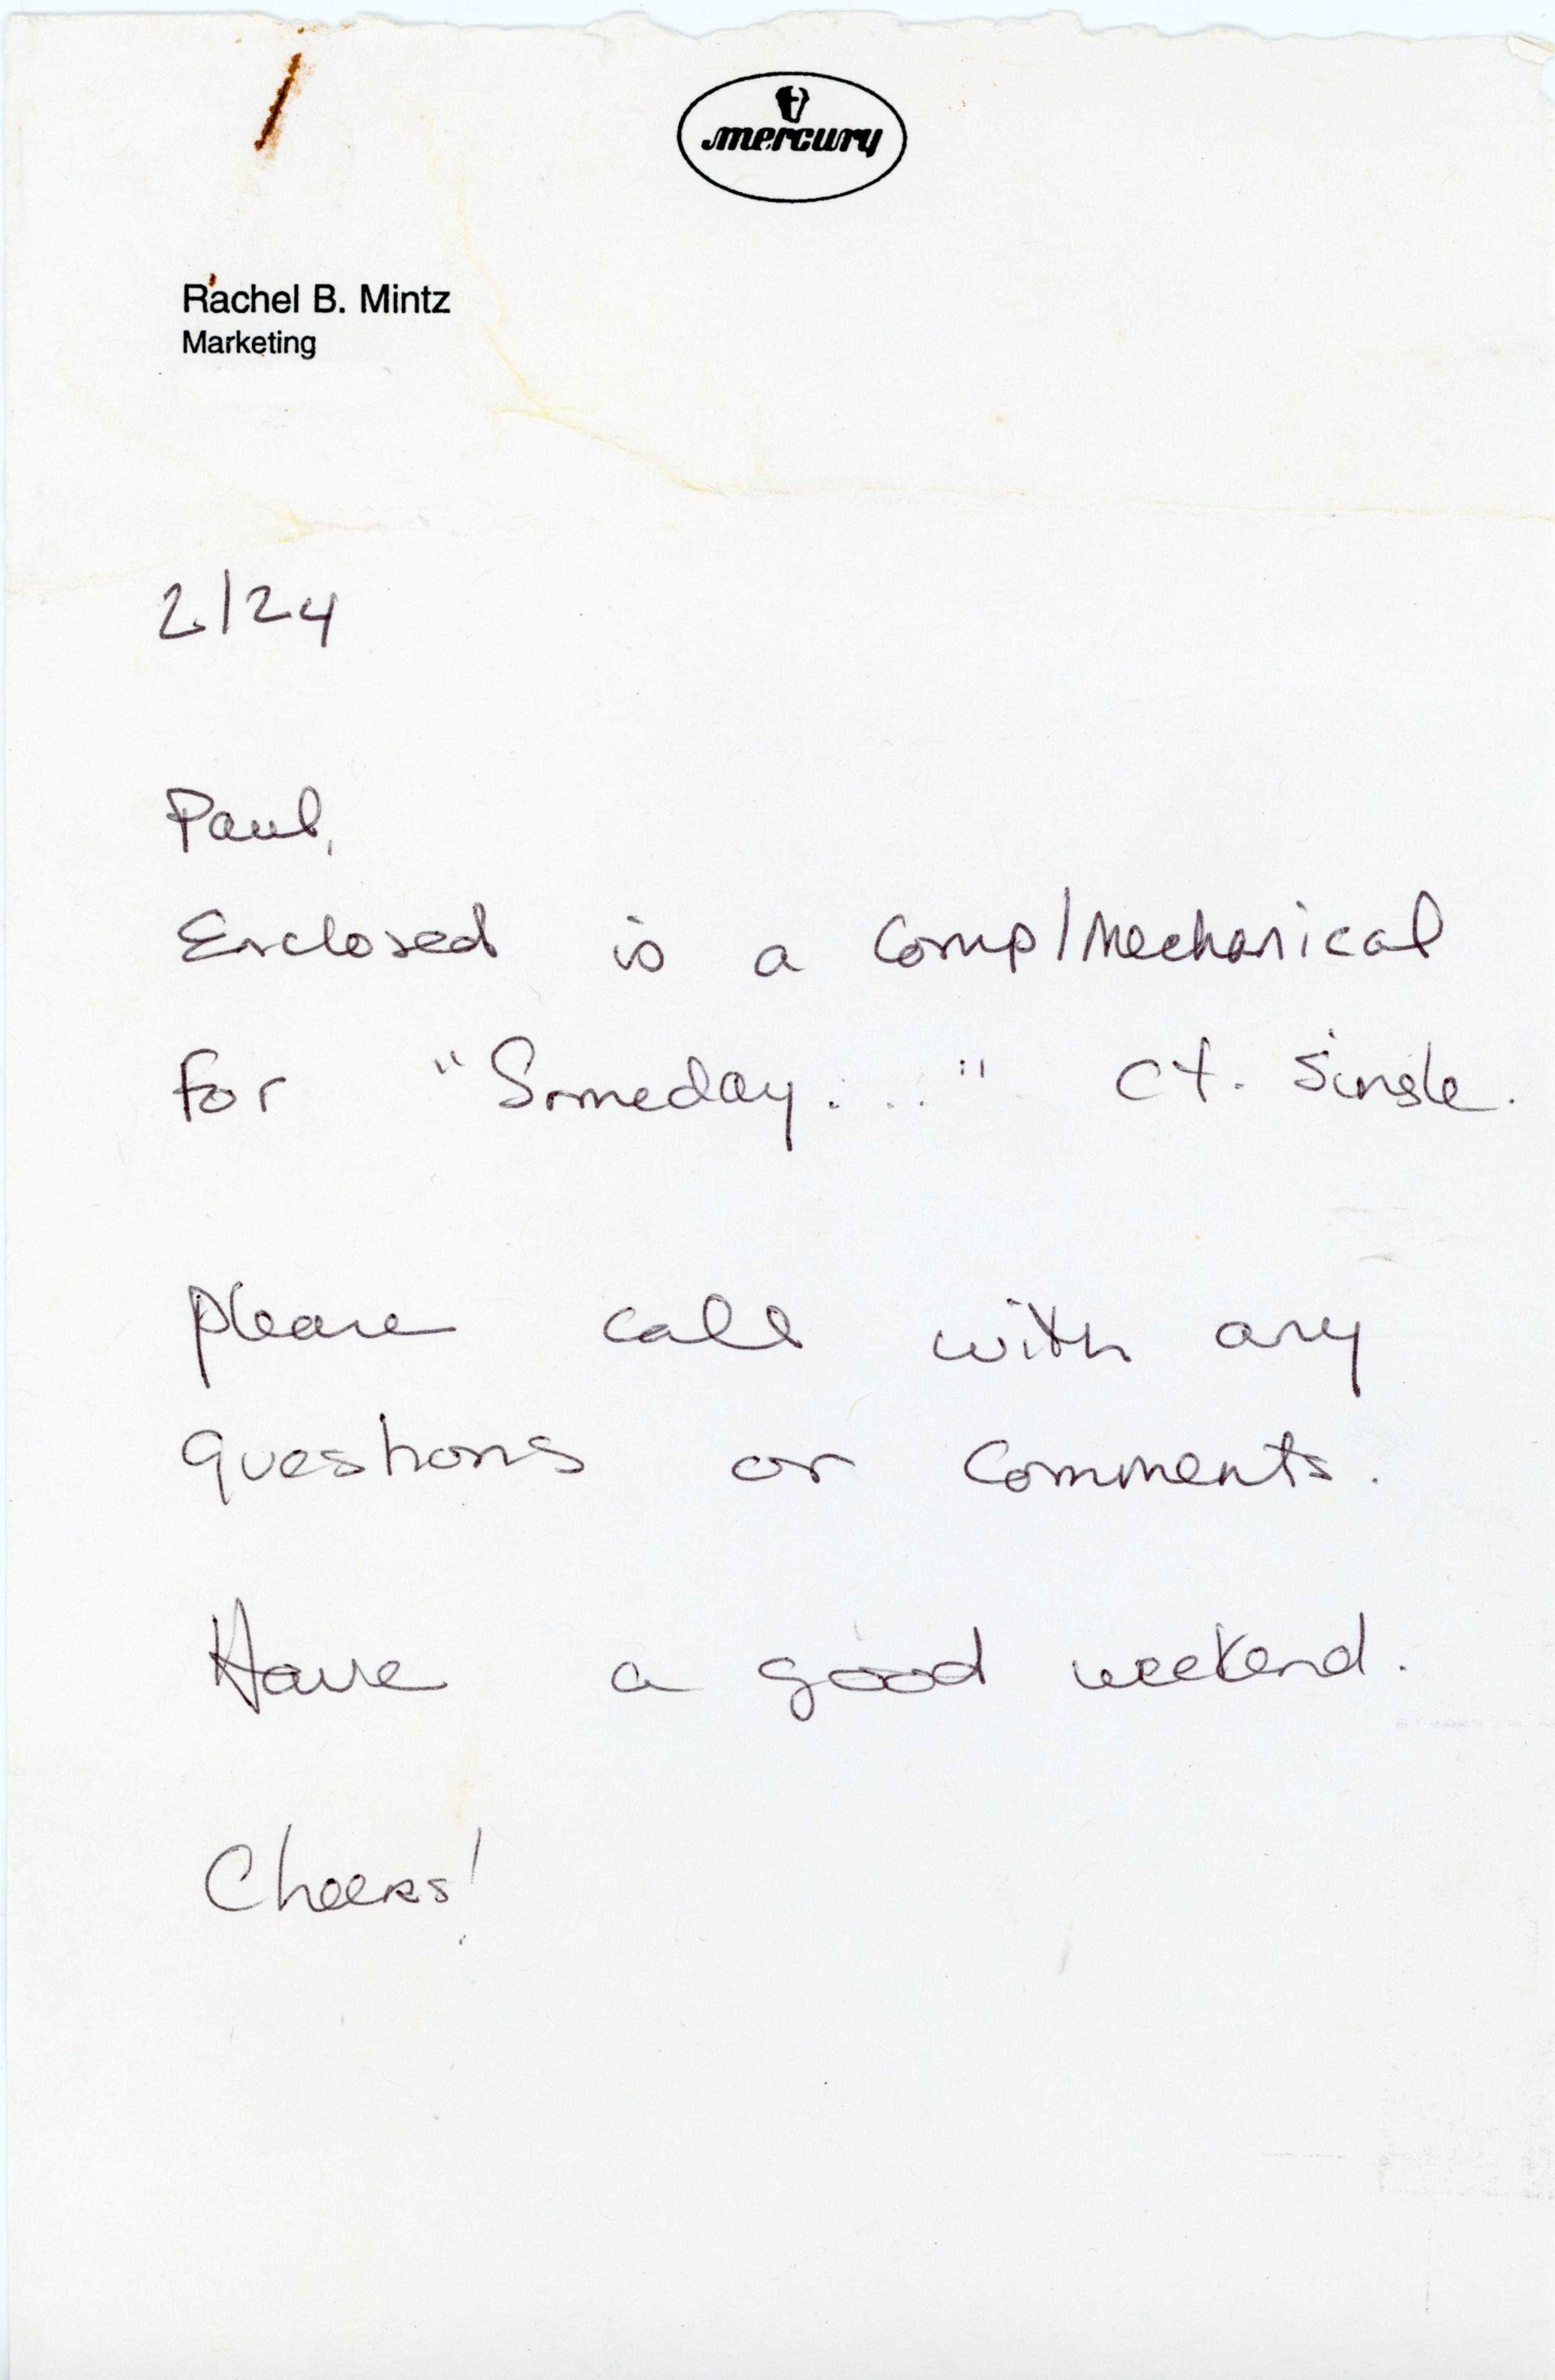 mercury
Rachel B. Mintz
Marketing
2/24
Paul,
Enclosed is a Comp/Mechanical
for "Someday..." CT. Single.
please call with any
questions or comments.
Have a good weekend.
Cheers!